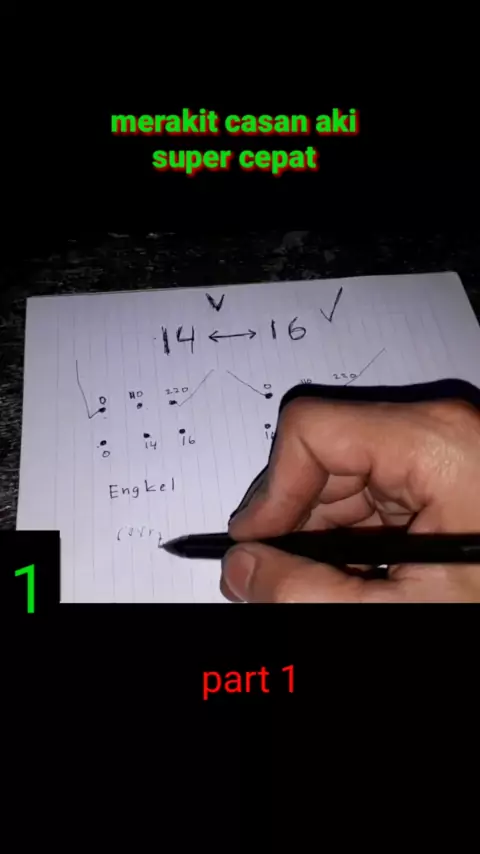 merakit casan aki
super cepat
V ✓
14 ↔ 16
0 110 220 0 110 220
0 14 16 14
Engkel
1
part 1